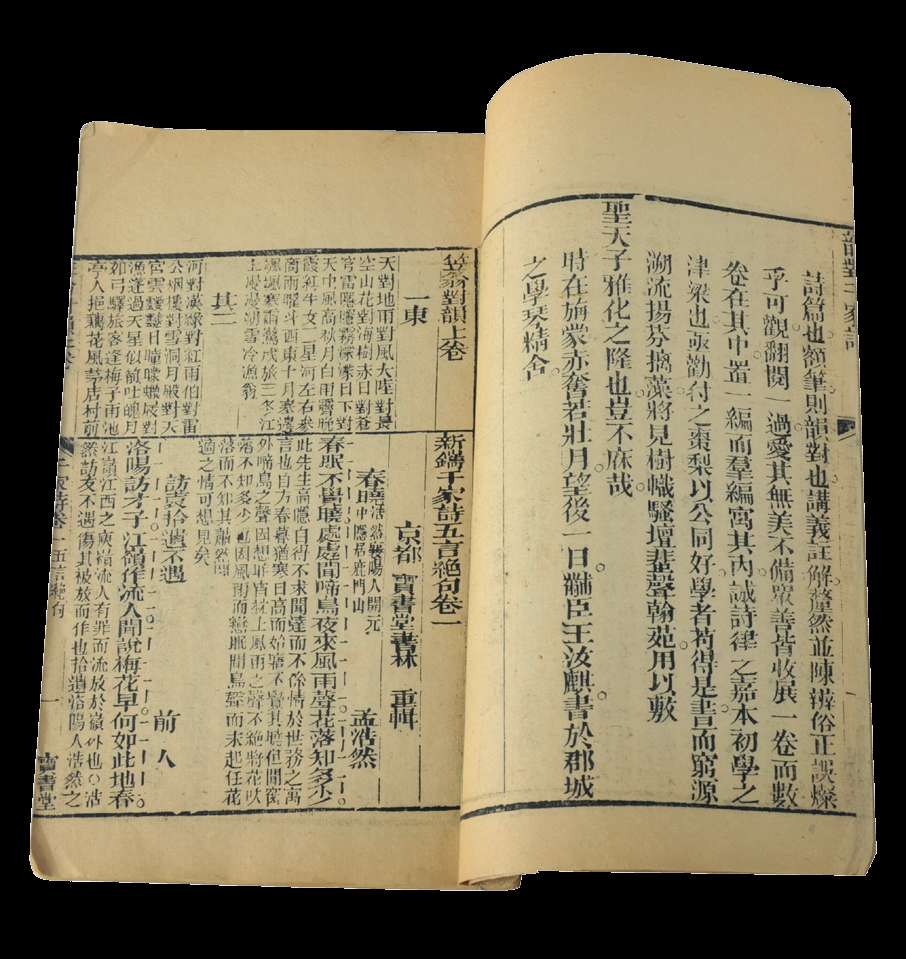 詩篇也額筆則韻對也講義註解釐然並陳辨俗正誤燦
乎可觀翻閱一過愛其無美不備眾善皆收展一卷而數
卷在其中置一編而羣編寓其內誠詩律之嘉本初學之
津梁也亟勸付之棗梨以公同好學者苟得是書而窮源
溯流揚芬摛藻將見樹幟騷壇蜚聲翰苑用以敷
聖天子雅化之隆也豈不庥哉
時在旃蒙赤奮若壯月望後一日
臣王汝麒書於郡城
之學琴精舍
笠翁對韻上卷
一東
天對地雨對風大陸對長
空山花對海樹赤日對蒼
官雷隱隱霧濛濛日下對
天中風高秋月白雨霽晚
霞紅牛女二星河左右參
商兩曜斗西東十月塞邊
颯颯寒霜驚戍旅三冬江
上漫漫朔雪冷漁翁
其二
河對漢綠對紅雨伯對雷
公烟樓對雪洞月殿對天
宮雲靉靆日曈曚蠟屐對
漁篷過天星似箭吐魄月
如弓驛旅客逢梅子雨池
亭人挹藕花風茅店村前
新鐫千家詩五言絕句卷一
京都 寶書堂書林 重輯
春曉
浩然襄陽人開元
中隱居鹿門山
孟浩然
春眠不覺曉處處聞啼鳥夜來風雨聲花落知多少
此先生高隱自得不求聞達而不係情於世務之寓
言也自方春暮猶寒日高而始寤不覺其曉但聞窗
外啼鳥之聲因想昨宵枕上風雨之聲不絕將花吹
落不知多少
適之情可想見矣
訪袁拾遺不遇
前人
洛陽訪才子江嶺作流人聞說梅花早何如此地春
江嶺江西之庾嶺流人有罪而流放於嶺外也○浩
然訪友不遇傷其被放而作也拾遺洛陽人浩然之
千家詩卷一五言絕句
一
寶書堂